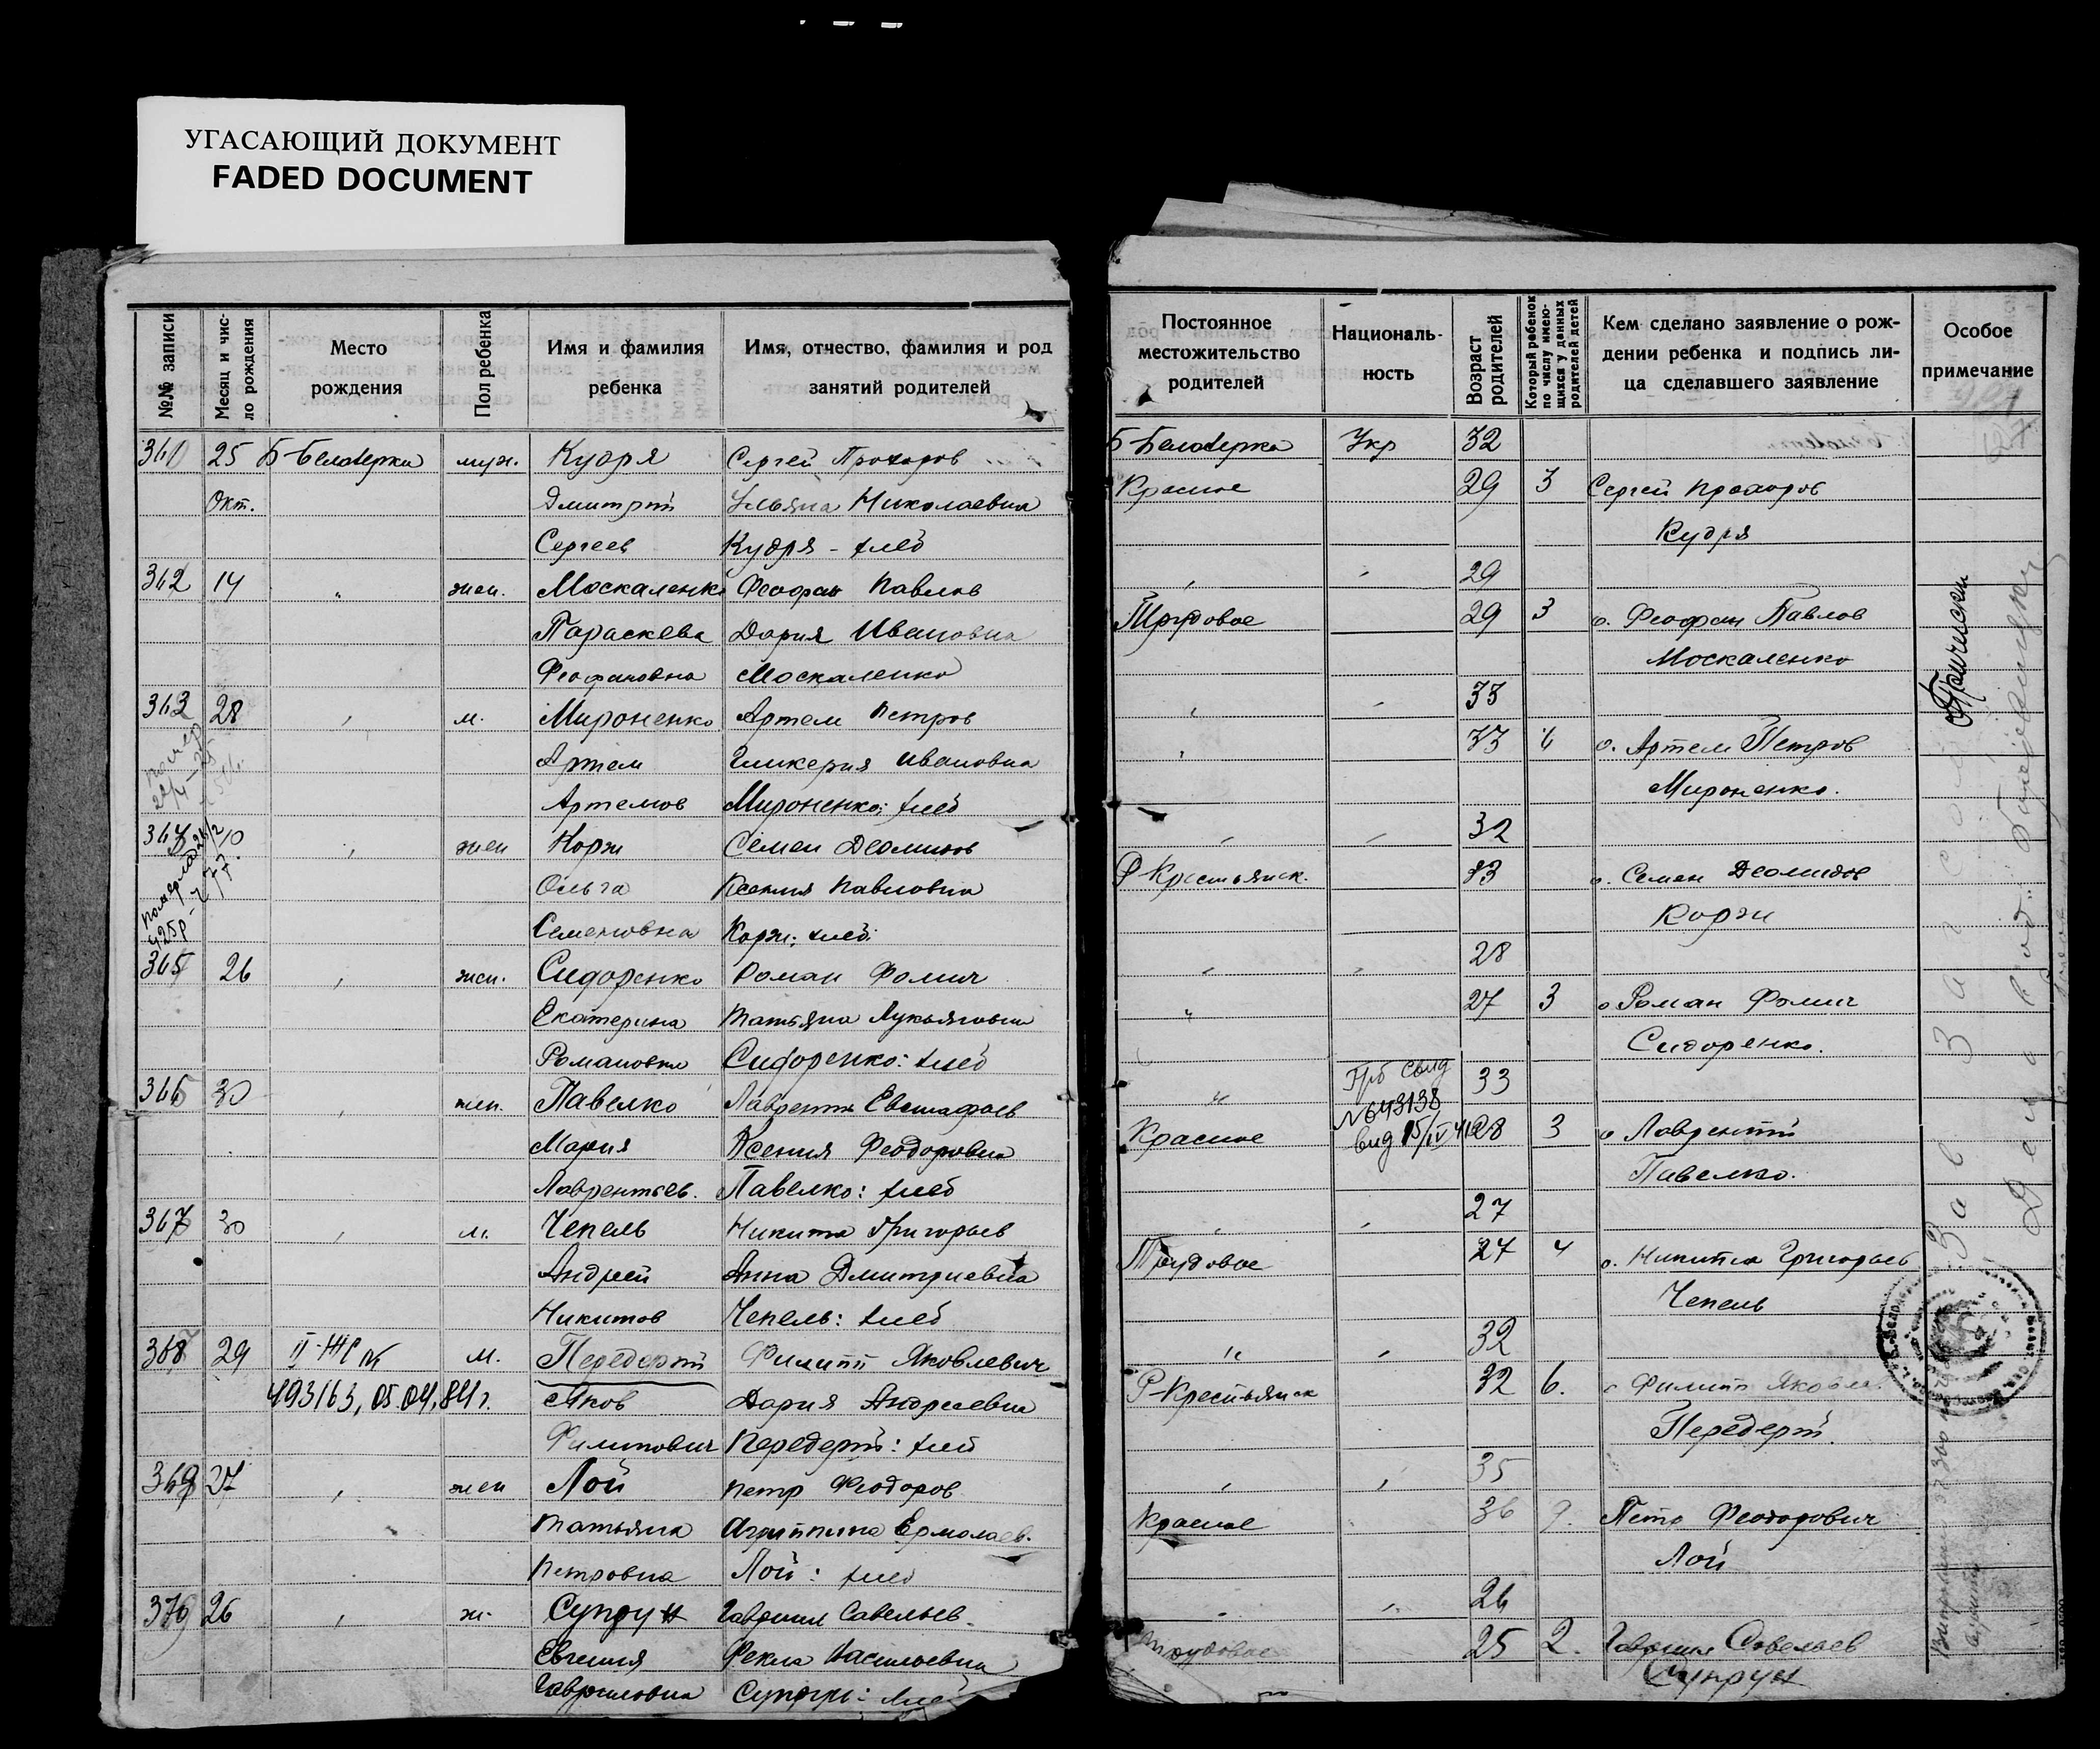 УГАСАЮЩИЙ ДОКУМЕНТ
FADED DOCUMENT
№№ записи
Месяц и чис-
ло рождения
Место
рождения
Пол ребенка
Имя и фамилия
ребенка
Имя, отчество, фамилия и род
занятий родителей
361 25 Б-Белозерка муж. Кудря Сергей Прохоров
Окт. Дмитрий Ульяна Николаевна
Сергеев Кудря - хлеб
362 14 " жен. Москаленко Феофан Павлов
Параскева Дария Ивановна
Феофановна Москаленко
363 28 " м. Мироненко Артем Петров
Артем Гликерия Ивановна
Артемов Мироненко; хлеб
364 10 " жен Корж Семен Деомидов
Ольга Ксения Павловна
Семеновна Корж; хлеб.
365 26 " жен. Сидоренко Роман Фомич
Екатерина Татьяна Лукьяновна
Романовна Сидоренко: хлеб
366 30 " жен. Павелко Лаврентий Евстафьев
Мария Ксения Феодоровна
Лаврентьев. Павелко: хлеб
367 30 " м. Чепель Никита Григорьев
Андрей Анна Дмитриевна
Никитов Чепель: хлеб
368 29 II-ЖС № м. Передерий Филипп Яковлевич
493163, 05.04.84 г. Яков Дария Андреевна
Филипович Передерий: хлеб
369 27 " жен Лой Петр Феодоров
Татьяна Агриппина Ермолаев.
Петровна Лой: хлеб
370 26 " ж. Супрун Гавриил Савельев
Евгения Фекла Васильевна
Гавриловна Супрун: хлеб
Постоянное
местожительство
родителей
Националь-
ность
Возраст
родителей
Который ребенок
по числу имею-
щихся у данных
родителей детей
Кем сделано заявление о рож-
дении ребенка и подпись ли-
ца сделавшего заявление
Особое
примечание
Б-Белозерка Укр 32
Красное 29 3 Сергей Прохоров
Кудря
" " 29
Трудовое 29 3 о. Феофан Павлов
Москаленко
" " 33
" 33 6 о. Артем Петров
Мироненко.
" " 32
Р-Крестьянск. 33 о. Семен Деомидов
Корж
" " 28
" 27 3 о Роман Фомич
Сидоренко.
" 33
№643138
Красное 28 3 о Лаврентий
Павелко.
" " 27
Трудовое 27 4 о. Никита Григорьев
Чепель
" " 32
Р-Крестьянск 32 6. о Филипп Яковл.
Передерий.
" " 35
Красное 36 Петр Феодорович
Лой
" " 26
Трудовое 25 2. Гавриил Савельев
Супрун